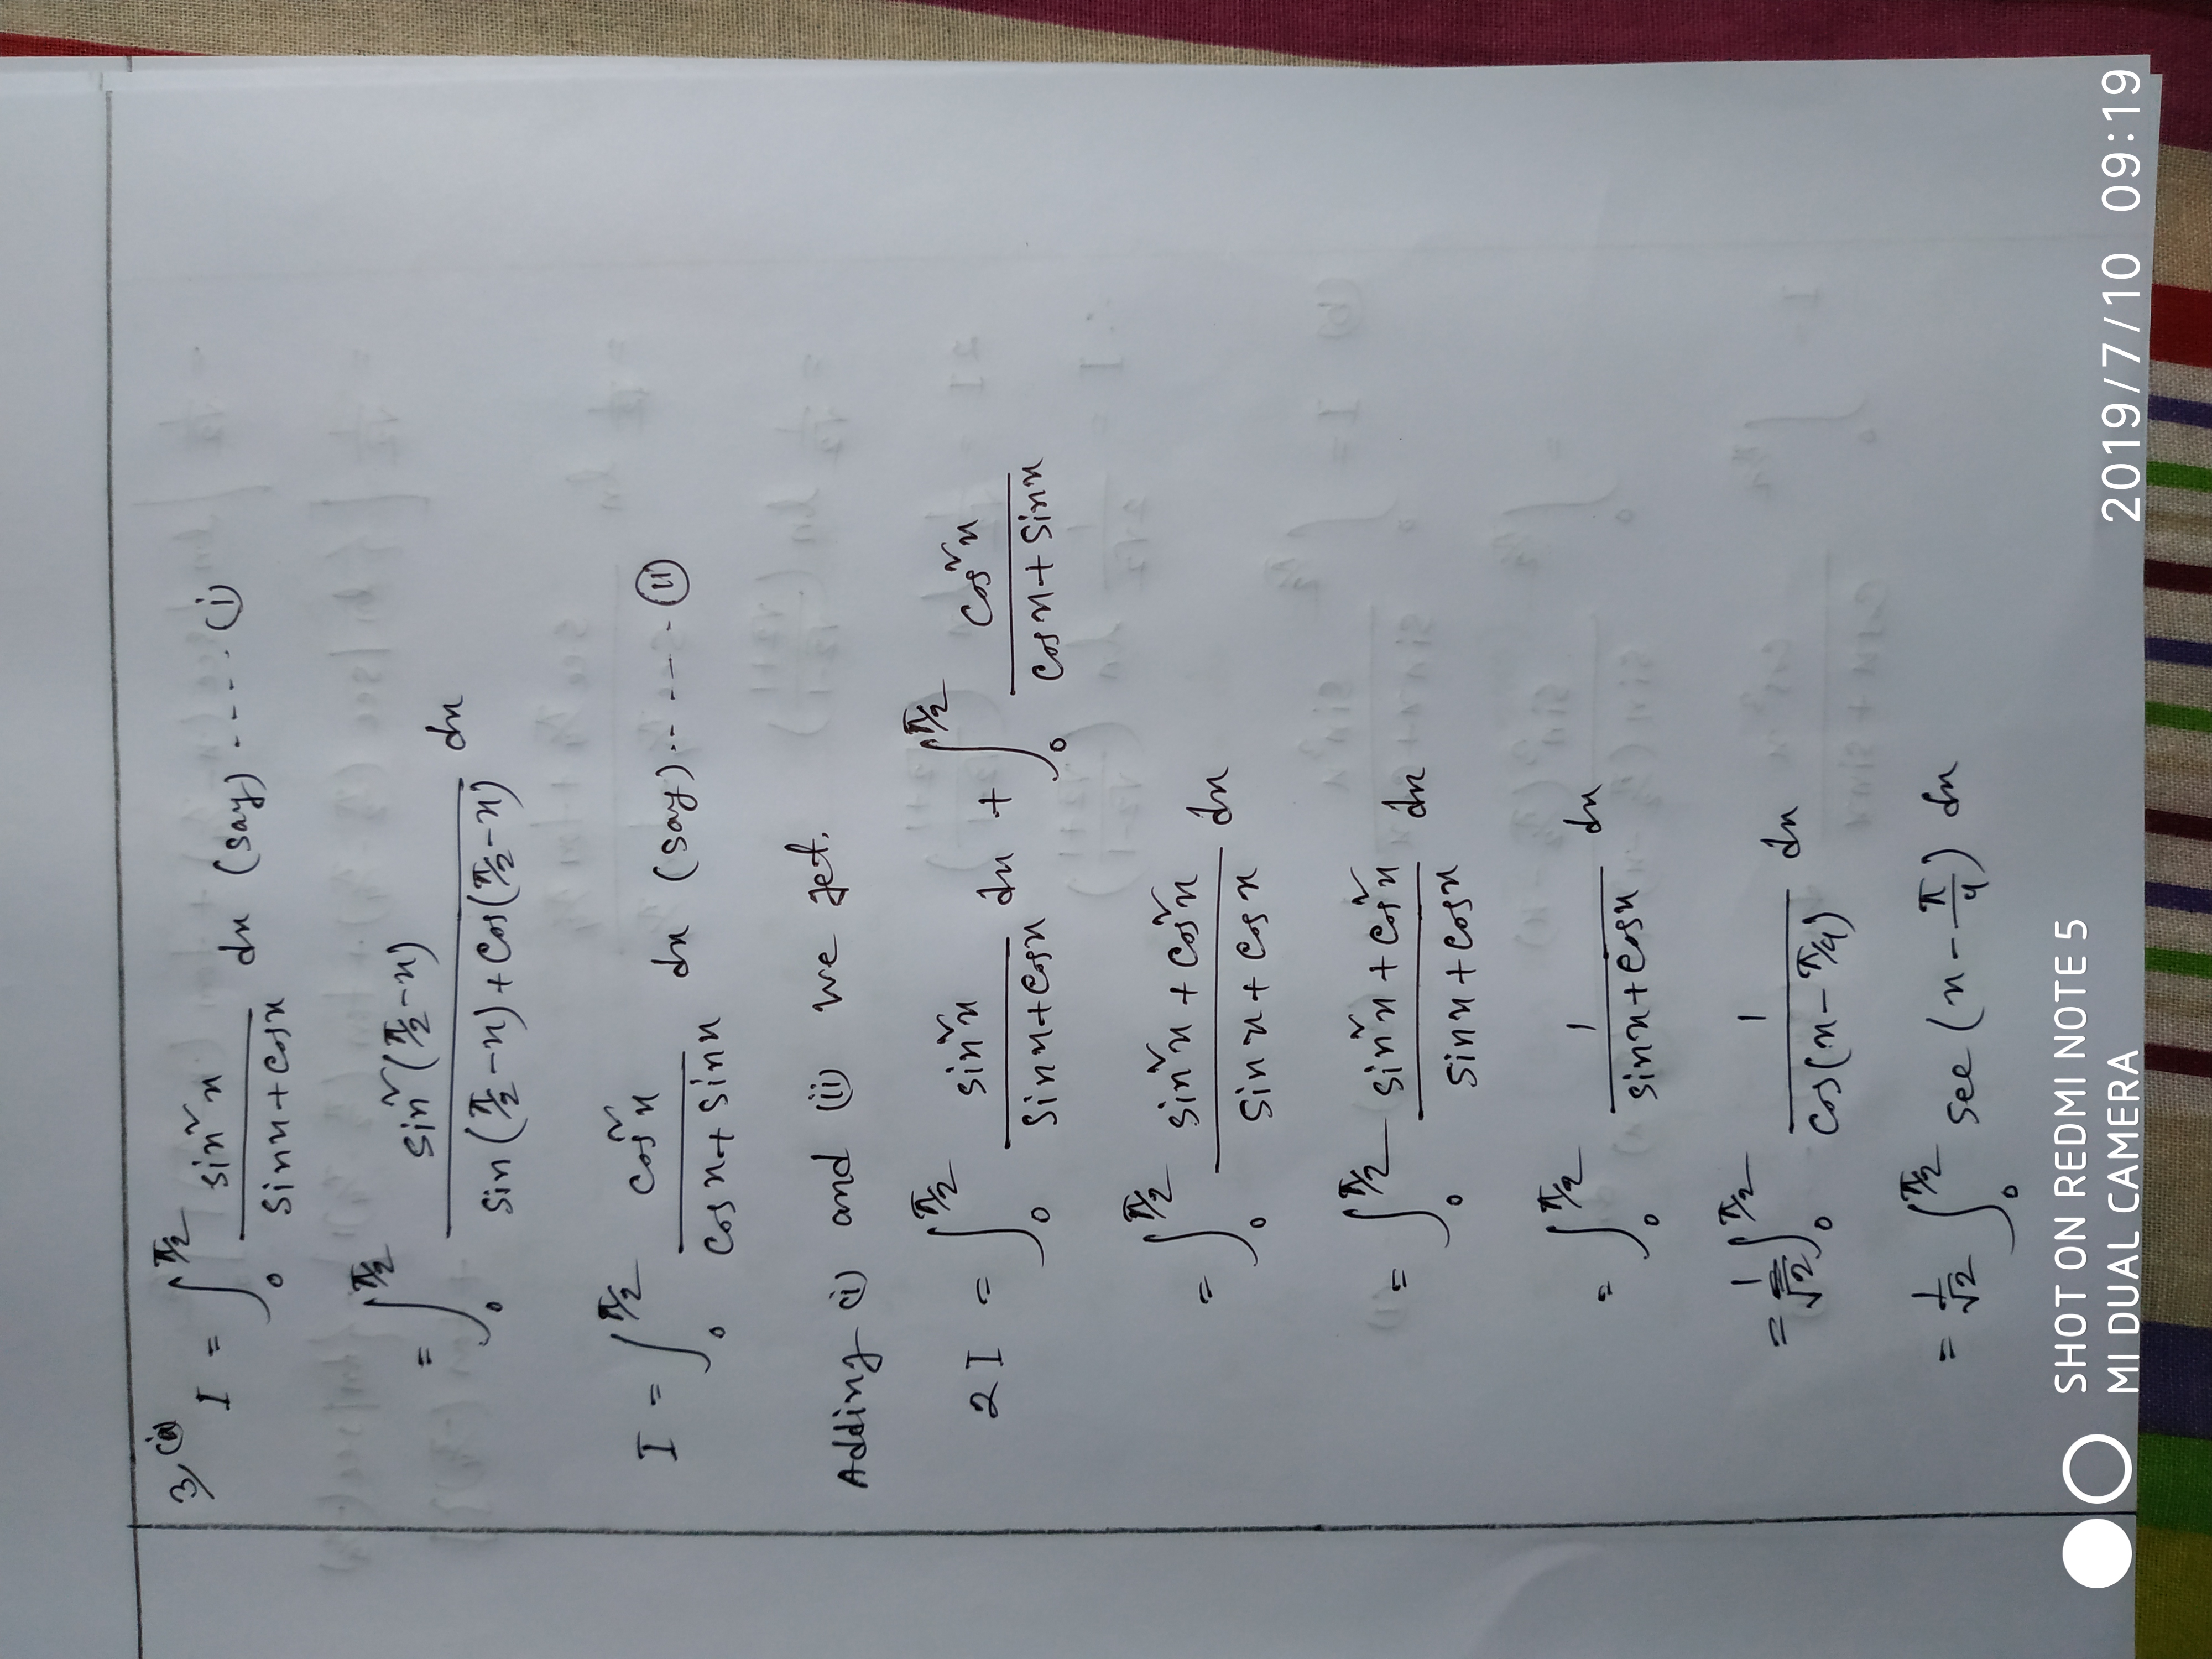 3, (a)
I = ∫₀^{π/2} sin²x / (sinx + cosx) dx (say) ..... (i)
= ∫₀^{π/2} sin²(π/2 - x) / (sin(π/2 - x) + cos(π/2 - x)) dx
I = ∫₀^{π/2} cos²x / (cosx + sinx) dx (say) ..... (ii)
Adding (i) and (ii) we get,
2I = ∫₀^{π/2} sin²x / (sinx + cosx) dx + ∫₀^{π/2} cos²x / (cosx + sinx)
= ∫₀^{π/2} (sin²x + cos²x) / (sinx + cosx) dx
= ∫₀^{π/2} (sin²x + cos²x) / (sinx + cosx) dx
= ∫₀^{π/2} 1 / (sinx + cosx) dx
= 1/√2 ∫₀^{π/2} 1 / cos(x - π/4) dx
= 1/√2 ∫₀^{π/2} sec (x - π/4) dx
SHOT ON REDMI NOTE 5
MI DUAL CAMERA
2019/7/10 09:19